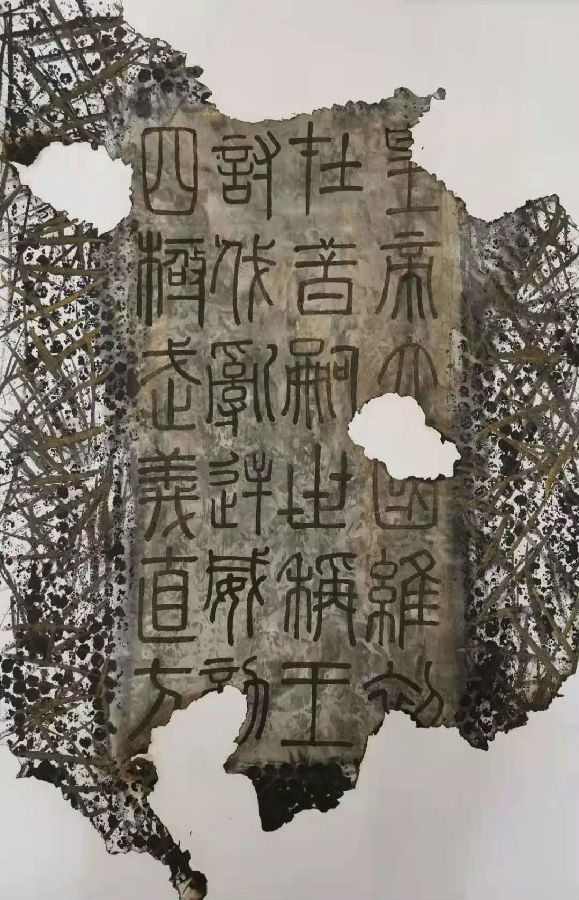 皇帝立國維初
在昔嗣世稱王
討伐亂逆威動
四極武義直方